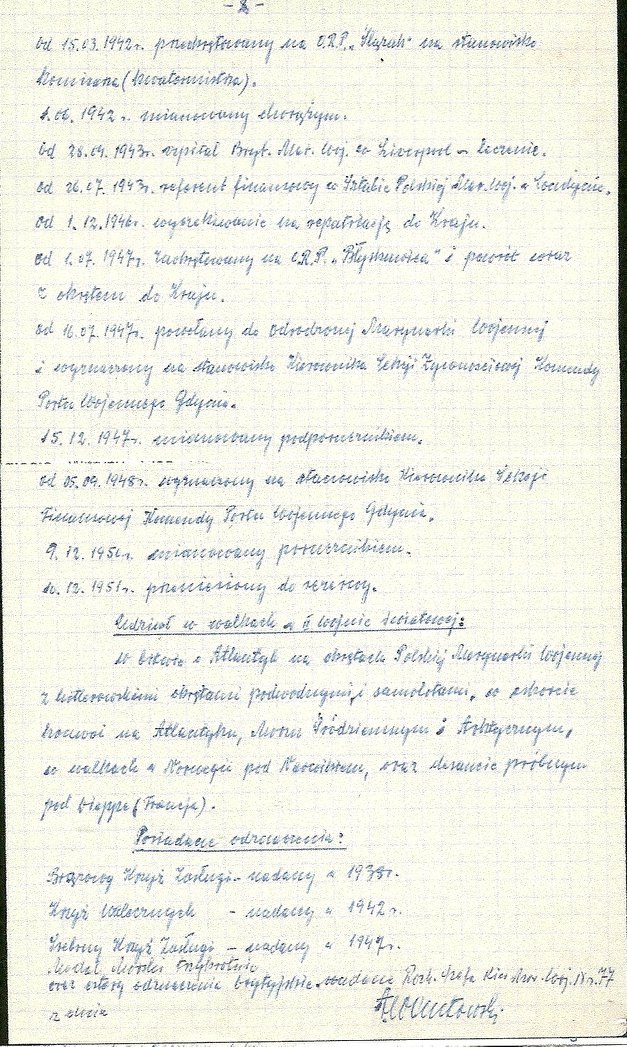 - 2 -
od 15.03.1942r. przeokrętowany na O.R.P. „Ślązak" na stanowisko
Komisarza (kwatermistrza).
1.06.1942 r. mianowany chorążym.
od 28.04.1943r. szpital Bryt. Mar. Woj. w Liverpol – leczenie.
od 26.07.1943r. referent finansowy w Sztabie Polskiej Mar. Woj. w Londynie.
od 1.12.1946r. wyczekiwanie na repatriację do Kraju.
od 1.07.1947r. zaokrętowany na O.R.P. „Błyskawica" i powrót wraz
z okrętem do Kraju.
od 16.07.1947r. powołany do odrodzonej Marynarki Wojennej
i wyznaczony na stanowisko Kierownika Sekcji Żywnościowej Komendy
Portu Wojennego Gdynia.
15.12.1947r. mianowany podporucznikiem.
od 05.09.1948r. wyznaczony na stanowisko Kierownika Sekcji
Finansowej Komendy Portu Wojennego Gdynia.
9.12.1950r. mianowany porucznikiem.
12.1951r. przeniesiony do rezerwy.
Udział w walkach w II wojnie światowej:
w bitwie o Atlantyk na okrętach Polskiej Marynarki Wojennej
z hitlerowskimi okrętami podwodnymi i samolotami, w eskorcie
konwoi na Atlantyku, Morzu Śródziemnym i Arktycznym,
w walkach w Norwegii pod Narwikiem, oraz desancie próbnym
pod Dieppe (Francja).
Posiadane odznaczenia:
Brązowy Krzyż Zasługi – nadany w 1938r.
Krzyż Walecznych – nadany w 1942r.
Srebrny Krzyż Zasługi – nadany w 1947r.
Medal Morski trzykrotnie
oraz cztery odznaczenia brytyjskie nadane Rozk. Szefa Kier. Mar. Woj. Nr. 77
z dnia